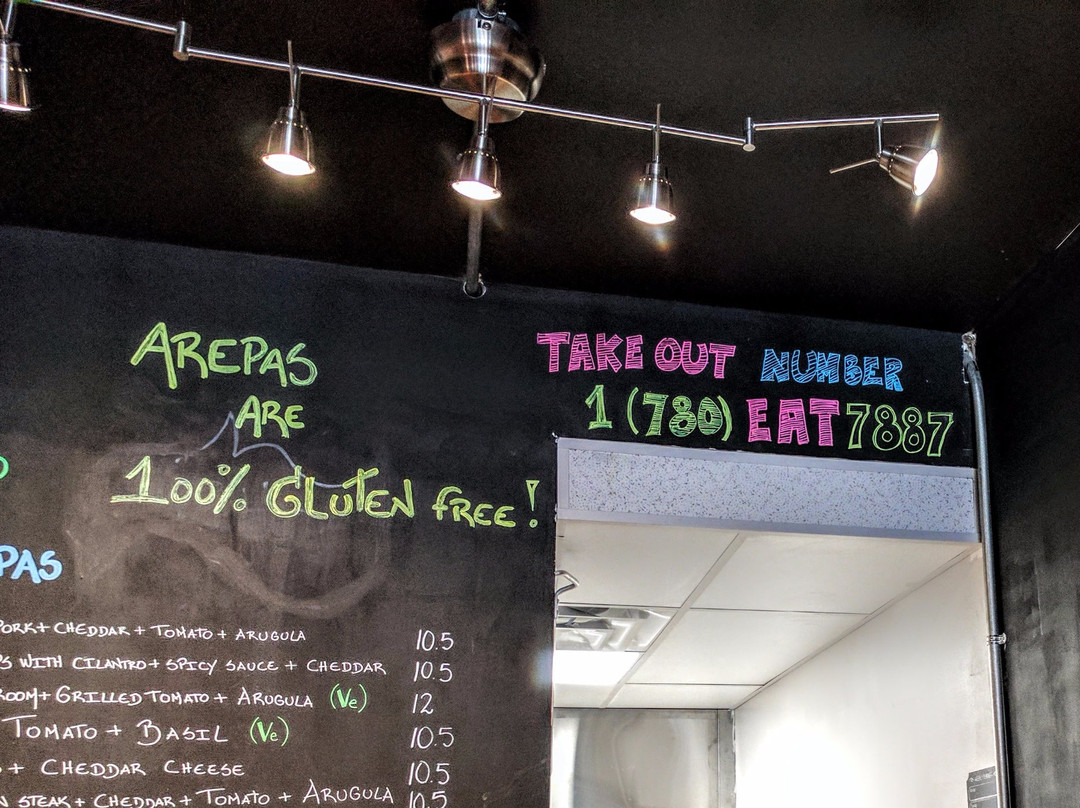 AREPAS
ARE
100% GLUTEN FREE!
TAKE OUT NUMBER
1 (780) EAT 7887
PAS
PORK + CHEDDAR + TOMATO + ARUGULA 10.5
WITH CILANTRO + SPICY SAUCE + CHEDDAR 10.5
ROOM + GRILLED TOMATO + ARUGULA (Ve) 12
TOMATO + BASIL (Ve) 10.5
+ CHEDDAR CHEESE 10.5
STEAK + CHEDDAR + TOMATO + ARUGULA 10.5